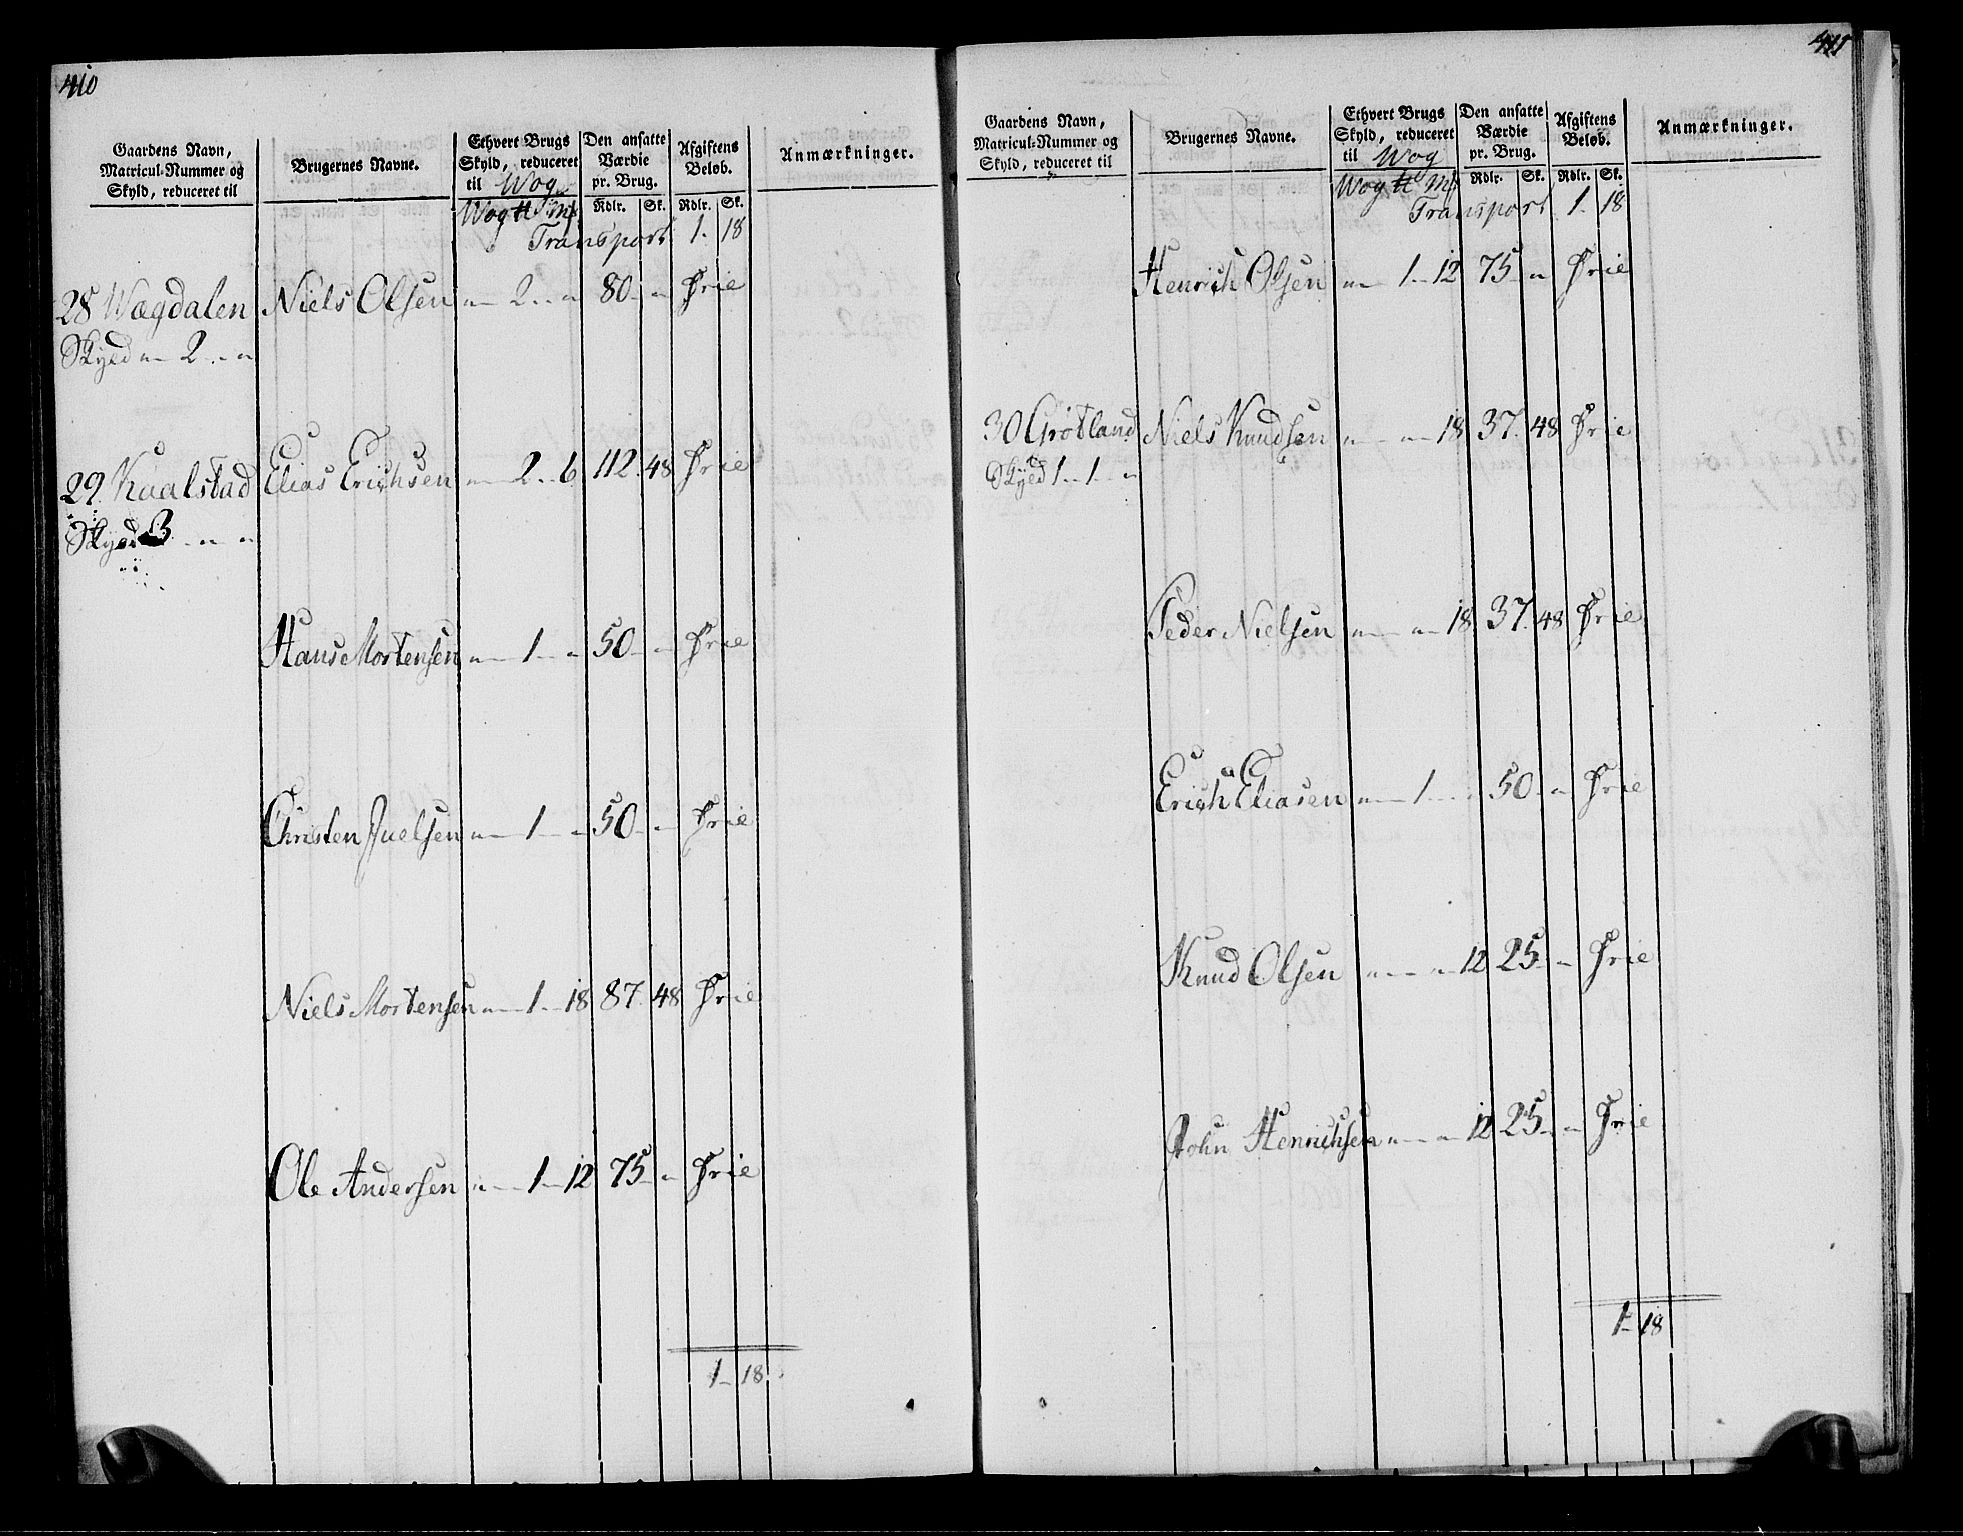 410
Gaardens Navn, Matricul-Nummer og Skyld, reduceret til
Brugernes Navne.
Ethvert Brugs Skyld, reduceret til Wog
Wog ℔ Mk
Den ansatte Værdie pr. Brug.
Rdlr. Sk.
Afgiftens Beløb.
Rdlr. Sk.
Anmærkninger.
Transport 1. 18
28 Wægdalen Niels Olsen „ 2 „ 80 „ Frie
Skyld „ 2 „
29. Kaalstad Elias Erichsen „ 2 6 112 48 Frie
Skyld 3 „ „
Hans Mortensen „ 1 „ 50 „ Frie
Christen Juelsen „ 1 „ 50 „ Frie
Niels Mortensen „ 1 18 87 48 Frie
Ole Andersen „ 1 12 75 „ Frie
1 18
411
Gaardens Navn, Matricul-Nummer og Skyld, reduceret til
Brugernes Navne.
Ethvert Brugs Skyld, reduceret til Wog
Wog ℔ Mk
Den ansatte Værdie pr. Brug.
Rdlr. Sk.
Afgiftens Beløb.
Rdlr. Sk.
Anmærkninger.
Transport 1. 18
Henrich Olsen „ 1 12 75 „ Frie
30 Grøtland Niels Knudsen „ „ 18 37 48 Frie
Skyld 1 1 „
Peder Nielsen „ „ 18 37 48 Frie
Erich Eliasen „ 1 „ 50 „ Frie
Knud Olsen „ „ 12 25 „ Frie
John Henrichsen „ „ 12 25 „ Frie
1 18